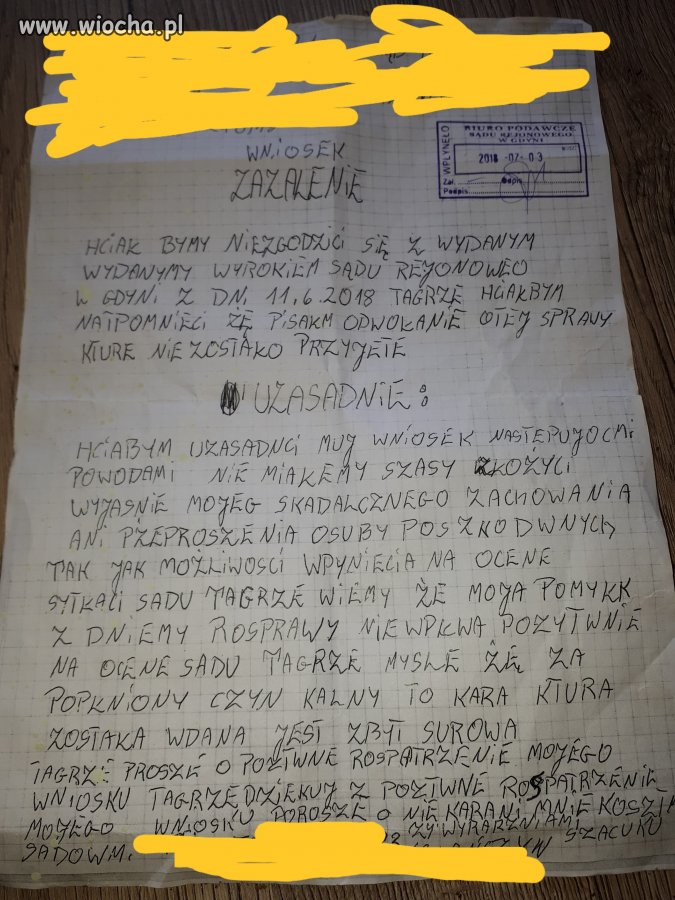 www.wiocha.pl
WNIOSEK
ZAZALENIE
WPŁYNĘŁO
BIURO PODAWCZE
SĄDU REJONOWEGO
W GDYNI
2018 -07- 03
Zał. Odpis
Podpis
HCIAK BYMY NIEZGODZICI SIĘ Z WYDANYM
WYDANYMY WYROKIEM SĄDU REJONOWEO
W GDYNI Z DNI. 11,6.2018 TAGRZE HCIAKBYM
NATPOMNIECI ZĘ PISAKM ODWOKANIE OTEJ SPRAWY
KTURE NIE ZOSTAKO PRZYJETE
UZASADNIE:
HCIABYM UZASADNCI MUJ WNIOSEK NASTEPUJOCMI
POWODAMI NIE MIAKEMY SZASY ZKOŻYCI
WYJASNIE MOJEG SKADALCZNEGO ZACHOWANIA
ANI PŻEPROSZENIA OSUBY POSZKODWNYCH
TAK JAK MOŻLIWOSCI WPYNIECIA NA OCENE
SYTKACI SADU TAGRZE WIEMY ŻE MOJA POMYKK
Z DNIEMY ROSPRAWY NIEWPKWA POZYTWNIE
NA OCENE SADU TAGRZE MYSLE ŻĘ ZA
POPKNIONY CZYN KALNY TO KARA KTURA
ZOSTAKA WDANA JEST ZBYT SUROWA
TAGRZE PROSZĘ O POZTWNE ROSPATRZENIE MOJEGO
WNIOSKU TAGRZE DZIEKUJ Z POZTWNE ROSPATRZENIE
MOJEGO WNOSKU POROSZE O NIE KARANI MNIE KOSZTM
SADOWM. ZY WYRARZNIAMI SZACUKU